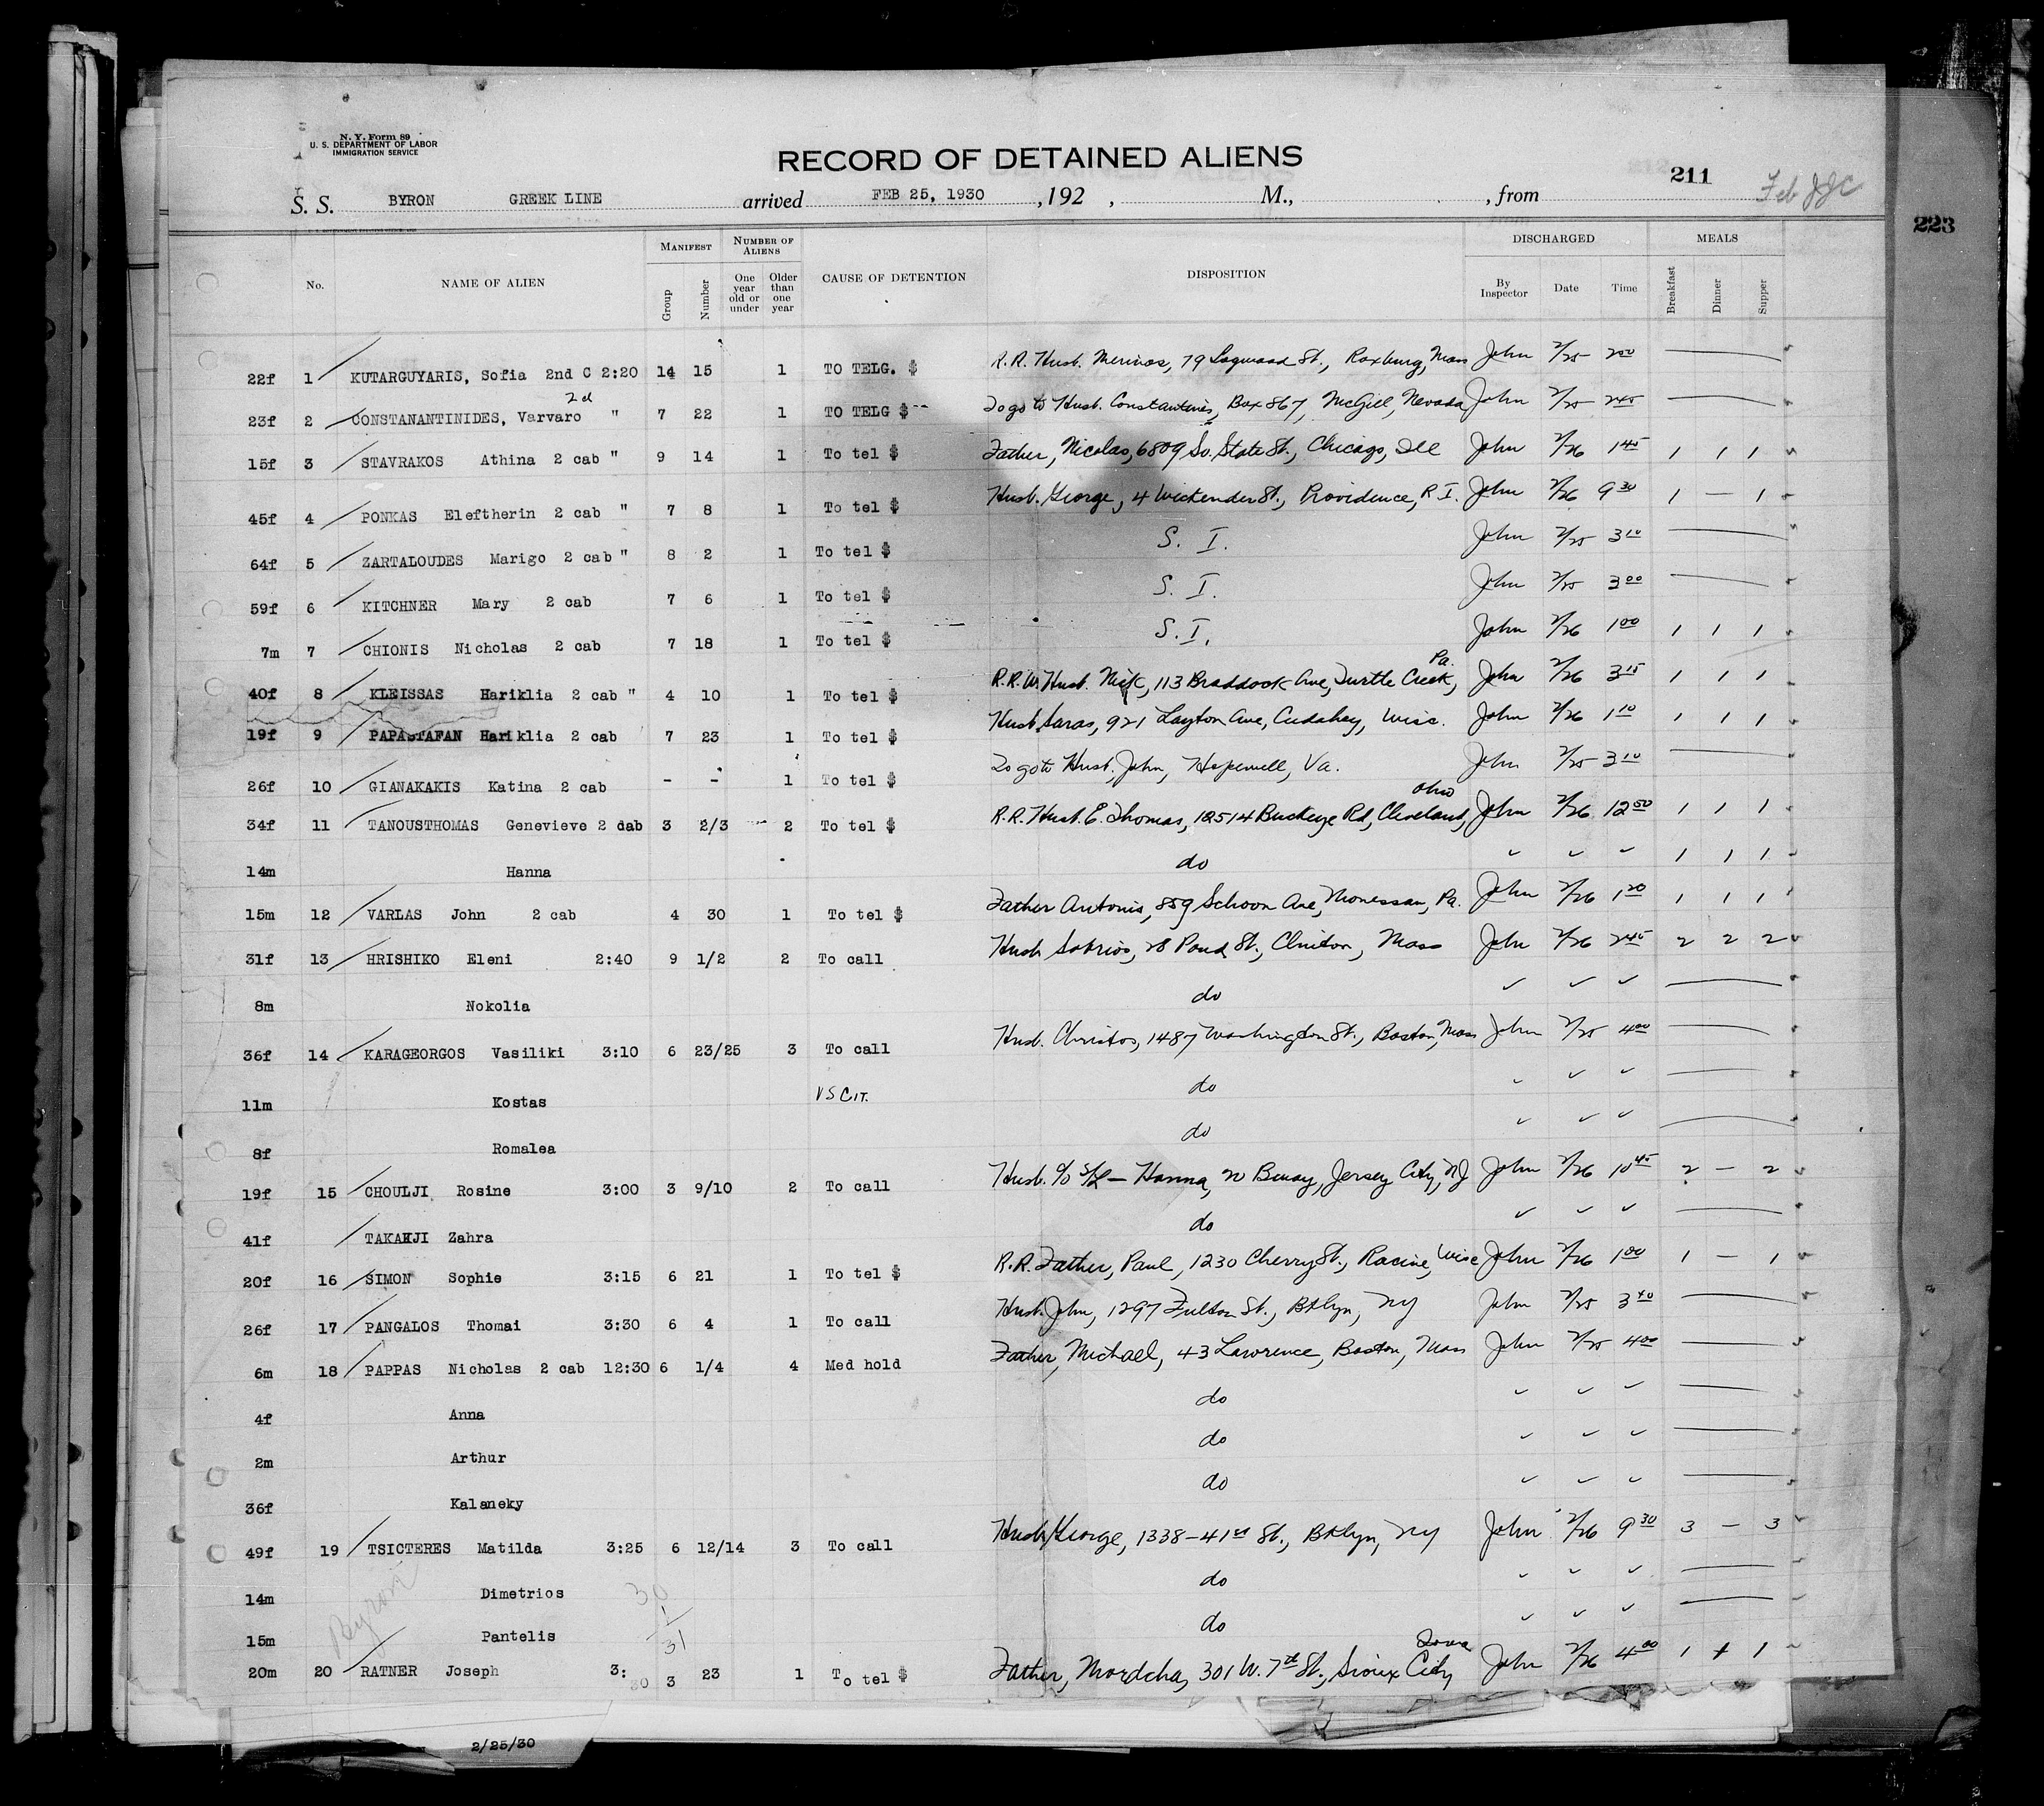 N. Y. Form 89
U. S. DEPARTMENT OF LABOR
IMMIGRATION SERVICE
RECORD OF DETAINED ALIENS
211
Feb JJC
223
S. S. BYRON GREEK LINE arrived FEB 25, 1930 , 192 , M., , from
No. NAME OF ALIEN MANIFEST Group Number NUMBER OF ALIENS One year old or under Older than one year CAUSE OF DETENTION DISPOSITION DISCHARGED By Inspector Date Time MEALS Breakfast Dinner Supper
22f 1 KUTARGUYARIS, Sofia 2nd C 2:20 14 15 1 TO TELG. $ R.R. Husb. Merinos, 79 St., Roxburg, Mass John 2/25 2 00
23f 2 CONSTANANTINIDES, Varvaro 2d " 7 22 1 TO TELG $ To go to Husb. Constantinis, Box 867, McGill, Nevada John 2/25 2 45
15f 3 STAVRAKOS Athina 2 cab " 9 14 1 To tel $ Father, Nicolas, 6809 So. State St., Chicago, Ill John 2/26 1 45 1 1 1
45f 4 PONKAS Eleftherin 2 cab " 7 8 1 To tel $ Husb. George, 4 Wickenden St., Providence, R I. John 2/26 9 30 1 — 1
64f 5 ZARTALOUDES Marigo 2 cab " 8 2 1 To tel $ S. I. John 2/25 3 10
59f 6 KITCHNER Mary 2 cab 7 6 1 To tel $ S. I. John 2/25 3 00
7m 7 CHIONIS Nicholas 2 cab 7 18 1 To tel $ S. I. John 2/26 1 00 1 1 1
40f 8 KLEISSAS Hariklia 2 cab " 4 10 1 To tel $ R.R.W. Husb. Nick, 113 Braddock Ave, Turtle Creek, Pa. John 2/26 3 15 1 1 1
19f 9 PAPASTAFAN Hariklia 2 cab 7 23 1 To tel $ Husb. Saras, 921 Layton Ave, Cudahey, Wisc. John 2/26 1 10 1 1 1
26f 10 GIANAKAKIS Katina 2 cab - - 1 To tel $ To go to Husb. John, Hopewell, Va. John 2/25 3 10
34f 11 TANOUSTHOMAS Genevieve 2 dab 3 2/3 2 To tel $ R.R. Husb. E. Thomas, 12514 Buckeye Rd, Cleveland, Ohio John 2/26 12 50 1 1 1
14m Hanna do ✓ ✓ ✓ 1 1 1
15m 12 VARLAS John 2 cab 4 30 1 To tel $ Father Antonis, 859 Schoon Ave, Monessan, Pa. John 2/26 1 20 1 1 1
31f 13 HRISHIKO Eleni 2:40 9 1/2 2 To call Husb Sotrios, 28 Pond St., Clinton, Mass John 2/26 2 45 2 2 2
8m Nokolia do ✓ ✓ ✓
36f 14 KARAGEORGOS Vasiliki 3:10 6 23/25 3 To call Husb. Christos, 1487 Washington St., Boston, Mass John 2/25 4 00
11m Kostas VS CIT. do ✓ ✓ ✓
8f Romalea do ✓ ✓ ✓
19f 15 CHOULJI Rosine 3:00 3 9/10 2 To call Husb. c/o S/L — Hanna, 20 Bway, Jersey City, NJ John 2/26 10 45 2 — 2
41f TAKAHJI Zahra do ✓ ✓ ✓
20f 16 SIMON Sophie 3:15 6 21 1 To tel $ R.R. Father, Paul, 1230 Cherry St., Racine, Wisc John 2/26 1 00 1 — 1
26f 17 PANGALOS Thomai 3:30 6 4 1 To call Husb. John, 1297 Fulton St., Bklyn, NY John 2/25 3 40
6m 18 PAPPAS Nicholas 2 cab 12:30 6 1/4 4 Med hold Father, Michael, 43 Lawrence, Boston, Mass John 2/25 4 00
4f Anna do ✓ ✓ ✓
2m Arthur do ✓ ✓ ✓
36f Kalaneky do ✓ ✓ ✓
49f 19 TSICTERES Matilda 3:25 6 12/14 3 To call Husb George, 1338-41st St., Bklyn, NY John 2/26 9 30 3 — 3
14m Dimetrios do ✓ ✓ ✓
15m Pantelis do ✓ ✓ ✓
Byron 30 1 31
20m 20 RATNER Joseph 3:30 3 23 1 To tel $ Father, Mordcha, 301 W. 7th St., Sioux City Iowa John 2/26 4 00 1 + 1
2/25/30